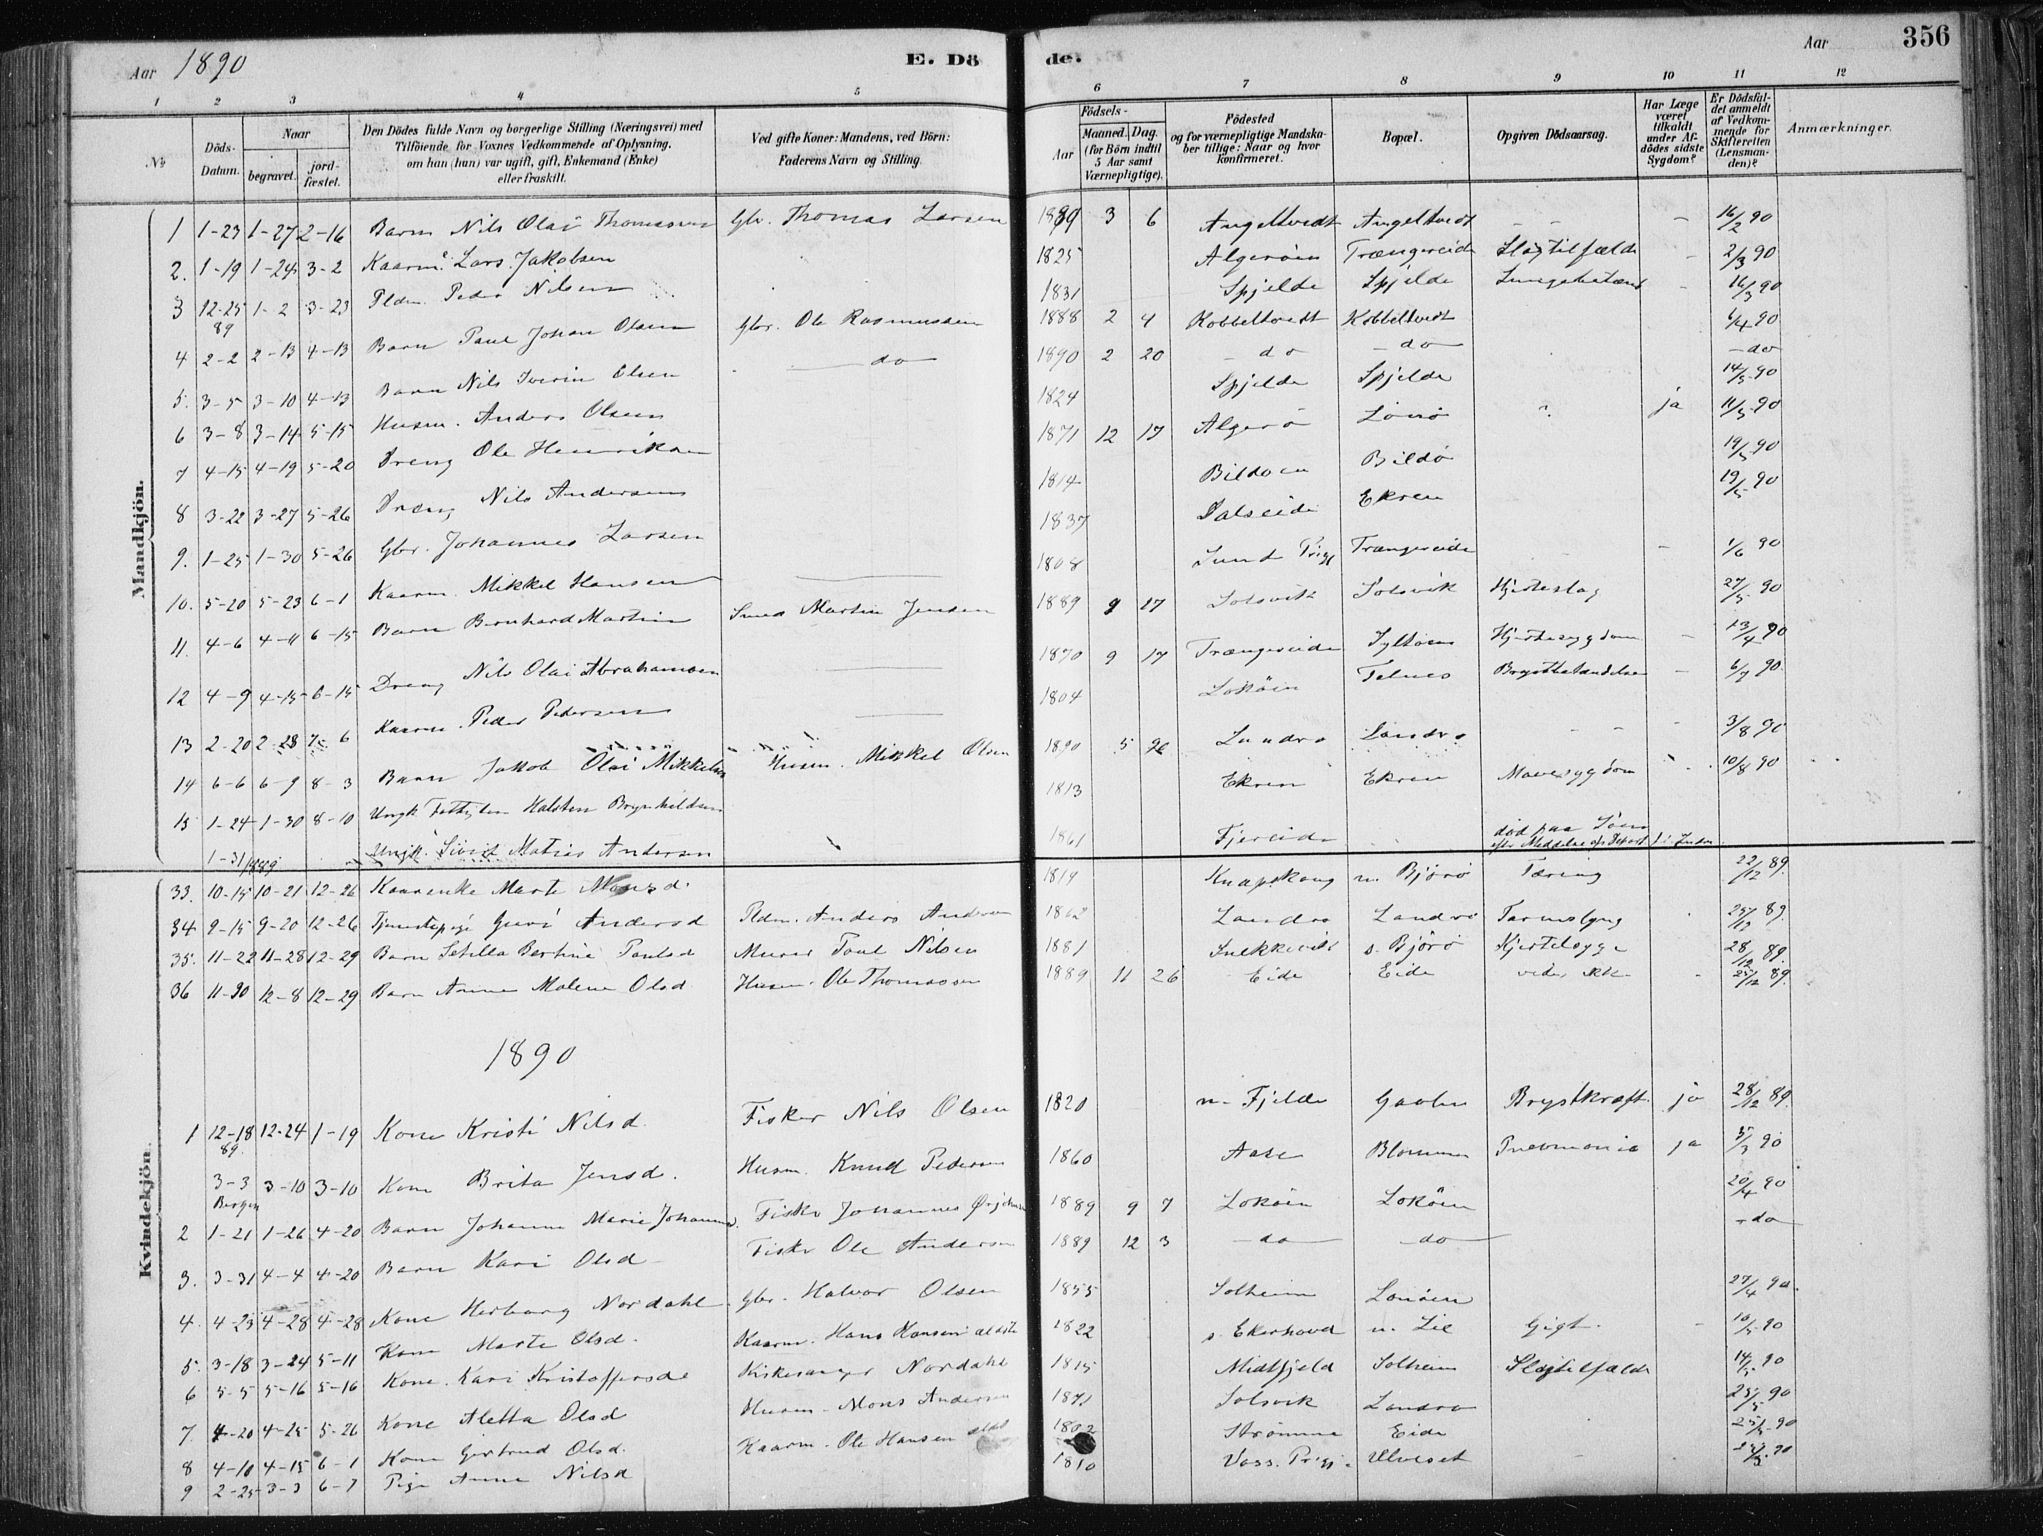 Aar 1890 E. Dö de. Aar 356
1 2 3 4 5 6 7 8 9 10 11 12
No Döds-Datum. Naar begravet. jord-fæstet. Den Dödes fulde Navn og borgerlige Stilling (Næringsvei) med Tilföiende for Voxnes Vedkommende af Oplysning, om han (hun) var ugift, gift, Enkemand (Enke) eller fraskilt. Ved gifte Koner: Mandens, ved Börn: Faderens Navn og Stilling. Födsels- Aar Maaned. Dag. (for Börn indtil 5 Aar samt Værnepligtige). Födested og for værnepligtige Mandskaber tillige: Naar og hvor konfirmeret. Bopæl. Opgiven Dödsaarsag. Har Læge været tilkaldt under Afdödes sidste Sygdom? Er Dödsfaldet anmeldt af Vedkommende for Skifteretten (Lensmanden)? Anmærkninger.
Mandkjön.
1 1-23 1-27 2-16 Barn Nils Olai Thomassen Gbr. Thomas Larsen 1889 3 6 Angeltvedt Angeltvedt - - - 16/2 90
2. 1-19 1-24 3-2 Kaarm. Lars Jakobsen 1825 Algerøien Trængereide Slagtilfælde - 2/3 90
3 12-25 89 1-2 3-23 Peder Nilsen 1831 Spjelde Spjelde - 16/3 90
4 2-2 2-13 4-13 Barn Paul Johan Olsen Gbr. Ole Rasmussen 1888 2 4 Kobbeltvedt Kobbeltvedt 6/4 90
5. 3-5 3-10 4-13 Barn Nils Severin Olsen do 1890 2 20 do do do
6 3-8 3-14 5-15 Husm. Anders Olsen 1824 Spjelde Spjelde 14/5 90
7 4-15 4-19 5-20 Dreng Ole Henriksen 1871 12 17 Algerø Lonø ja 11/5 90
8 3-22 3-27 5-26 Dreng Nils Andersen 1814 Bildøen Bildø 19/5 90
9. 1-25 1-30 5-26 Gbr. Johannes Larsen 1837 Dalseide Ekren 19/5 90
10. 5-20 5-23 6-1 Kaarm. Mikkel Hansen 1808 Sund Trængereide - 1/6 90
11. 4-6 4-11 6-15 Barn Bernhard Martin Smed Martin Jensen 1889 9 27 Solsvik Solsvik Hjerteslag 27/5 90
12 4-9 4-15 6-15 Dreng Nils Olai Abrahamsen 1870 9 17 Trængereide Syltøen Hjertesygdom - 13/4 90
13 2-20 2-28 7-6 Kaarm. Peder Pedersen 1804 Lokøien Telnes Brystbetændelse - 6/7 90
14 6-6 6-9 8-3 Barn Jakob Olai Mikkelsen Husm. Mikkel Olsen 1890 5 26 Landro Landro - - 3/8 90
15 1-24 1-30 8-10 Ungk. Halsten Brynhildsen 1813 Ekren Ekren Mavesygdom 10/8 90
1-31/1889 Ungk. Sivert Matias Andersen 1861 Fjereide død paa Søen
Kvindekjön.
33. 10-15 10-21 12-26 Kaarenke Marte Monsd. 1819 Knapskong n. Bjørø Tæring 22/12 89.
34 9-15 9-20 12-26 Tjenestepige Guri Andersd Anders Andersen 1862 Landro Landro 89.
35. 11-22 11-28 12-29 Barn Bertine Paulsd Murer Paul Nilsen 1881 Snekkevik s. Bjørø Hjertesyge 28/12 89.
36 11-30 12-8 12-29 Barn Anna Malene Olsd Husm. Ole Thomassen 1889 11 26 Eide Eide vides ikke 25/12 89.
1890
1 12-18 89. 12-24 1-19 Kone Kristi Nilsd. Fisker Nils Olsen 1820 n. Fjelde Brystkræft ja 28/12 89.
3-3 Bergen 3-10 3-10 Kone Brita Jensd. Husm. Knud Pedersen 1860 Aase Pneumonia ja 5/3 90
2 1-21 1-26 4-20 Barn Johanne Marie Johannesd. Fisker Johannes 1889 9 7 Lokøien Lokøien 20/4 90
3. 3-31 4-4 4-20 Barn Kari Olsd Fisker Ole Andersen 1889 12 3 do do do
4. 4-23 4-28 4-28 Kone Herborg Nordahl Gbr. Halvor Olsen 1855 Solheim Lonøen 27/4 90.
5. 3-18 3-24 5-11 Kone Marte Olsd. Kaarm. Hans Hansen ældste 1822 s. Ekerhovd n. Lie Gigt. - 10/5 90
6 5-5 5-16 5-16 Kone Kari Kristoffersd Kirkesanger Nordahl 1815 Midtfjeld Solheim Slagtilfælde 14/5 90
7. 4-20 4-25 5-26 Kone Aletta Olsd Husm. Mons Andersen 1871 Solsvik Landro 25/5 90
8 4-10 4-15 6-1 Kone Gjertrud Olsd. Kaarm. Ole Hansen 1802 Strømme Eide 25/5 90
9 2-25 3-3 6-7 Pige Anna Nilsd 1810 Voss. Ulveset - 90